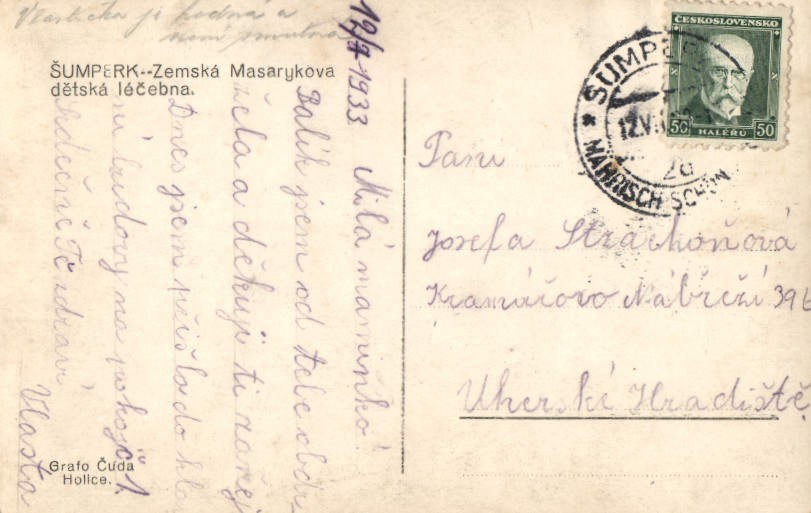 Vlastička je hodná a
není smutná
ŠUMPERK--Zemská Masarykova
dětská léčebna.
12/7 1933 Milá maminko!
Balík jsem od tebe obdr-
žela a děkuji ti za něj
Dnes jsem přišla do hla-
vní budovy na pokoj č 1.
Srdečně Tě zdraví
Vlasta
Grafo Čuda
Holice.
ČESKOSLOVENSKO
50 HALÉŘŮ 50
* ŠUMPERK
12.V
2a
MÄHRISCH SCHÖN
Paní
Josefa Strachoňová
Kramářovo Nábřeží 396
Uherské Hradiště